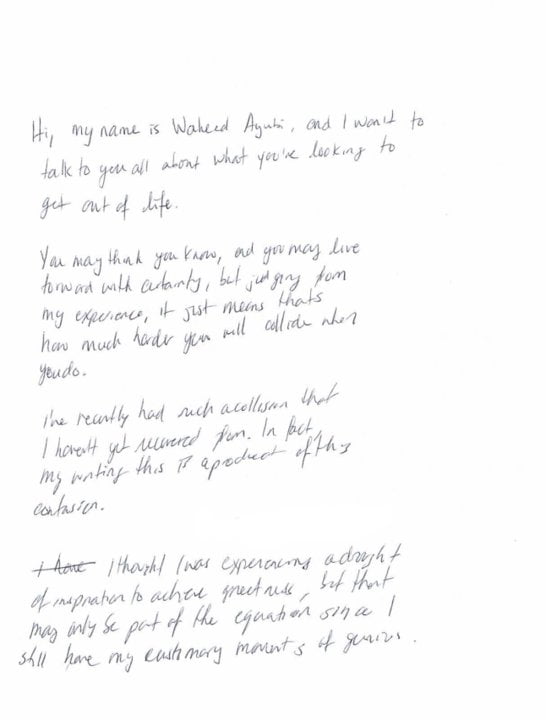 Hi, my name is Waheed Ayubi, and I want to
talk to you all about what you're looking to
get out of life.
You may think you know, and you may live
forward with certainty, but judging from
my experience, it just means thats
how much harder you will collide when
you do.
I've recently had such a collision that
I haven't yet recovered from. In fact,
my writing this is a product of this
confusion.
I have I thought I was experiencing a drought
of inspiration to achieve greatness, but that
may only be part of the equation since I
still have my customary moments of genius.